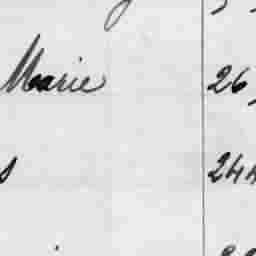 Marie 26
s 244